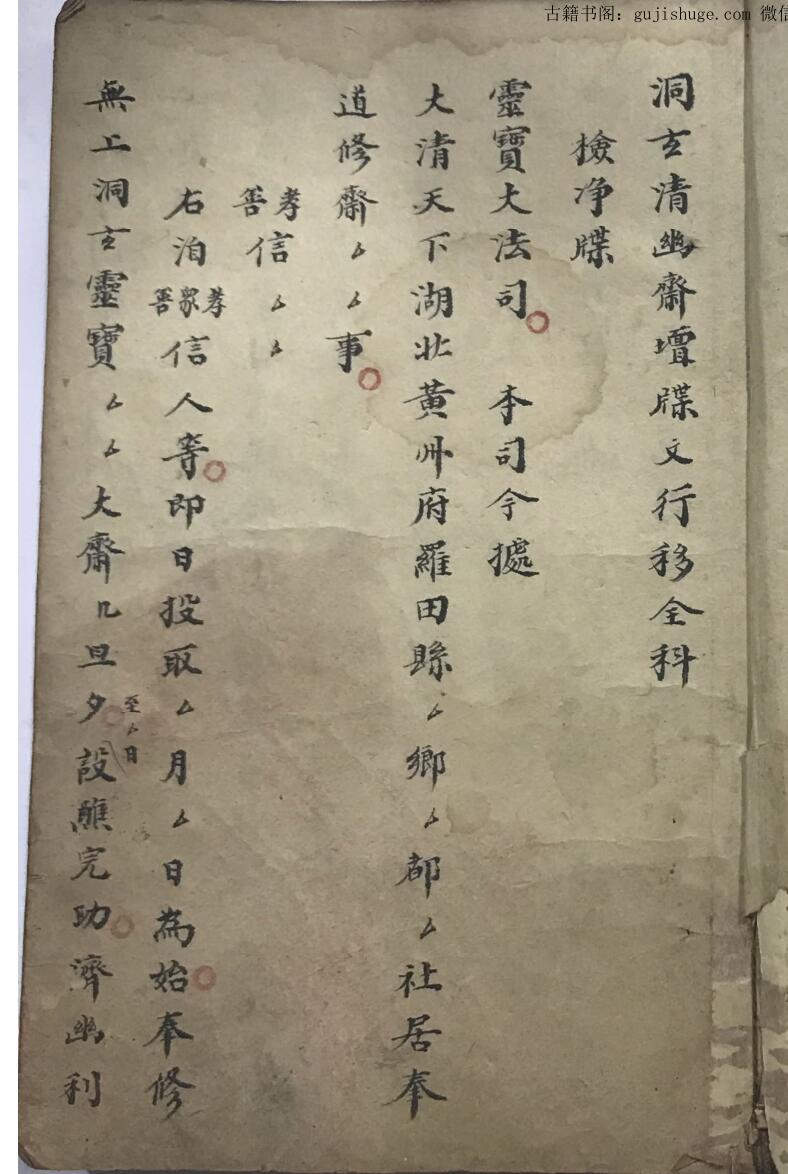 古籍书阁：gujishuge.com 微信
洞玄清幽齋壇牒文行移全科
檢净牒
靈寶大法司 本司今據
大清天下湖北黃州府羅田縣厶鄉厶都厶社居奉
道修齋厶厶事
孝善信厶厶
右洎孝眾善信人等即日投取厶月厶日為始奉修
無上洞玄靈寶厶厶大齋几旦夕至厶日設醮完功濟幽利